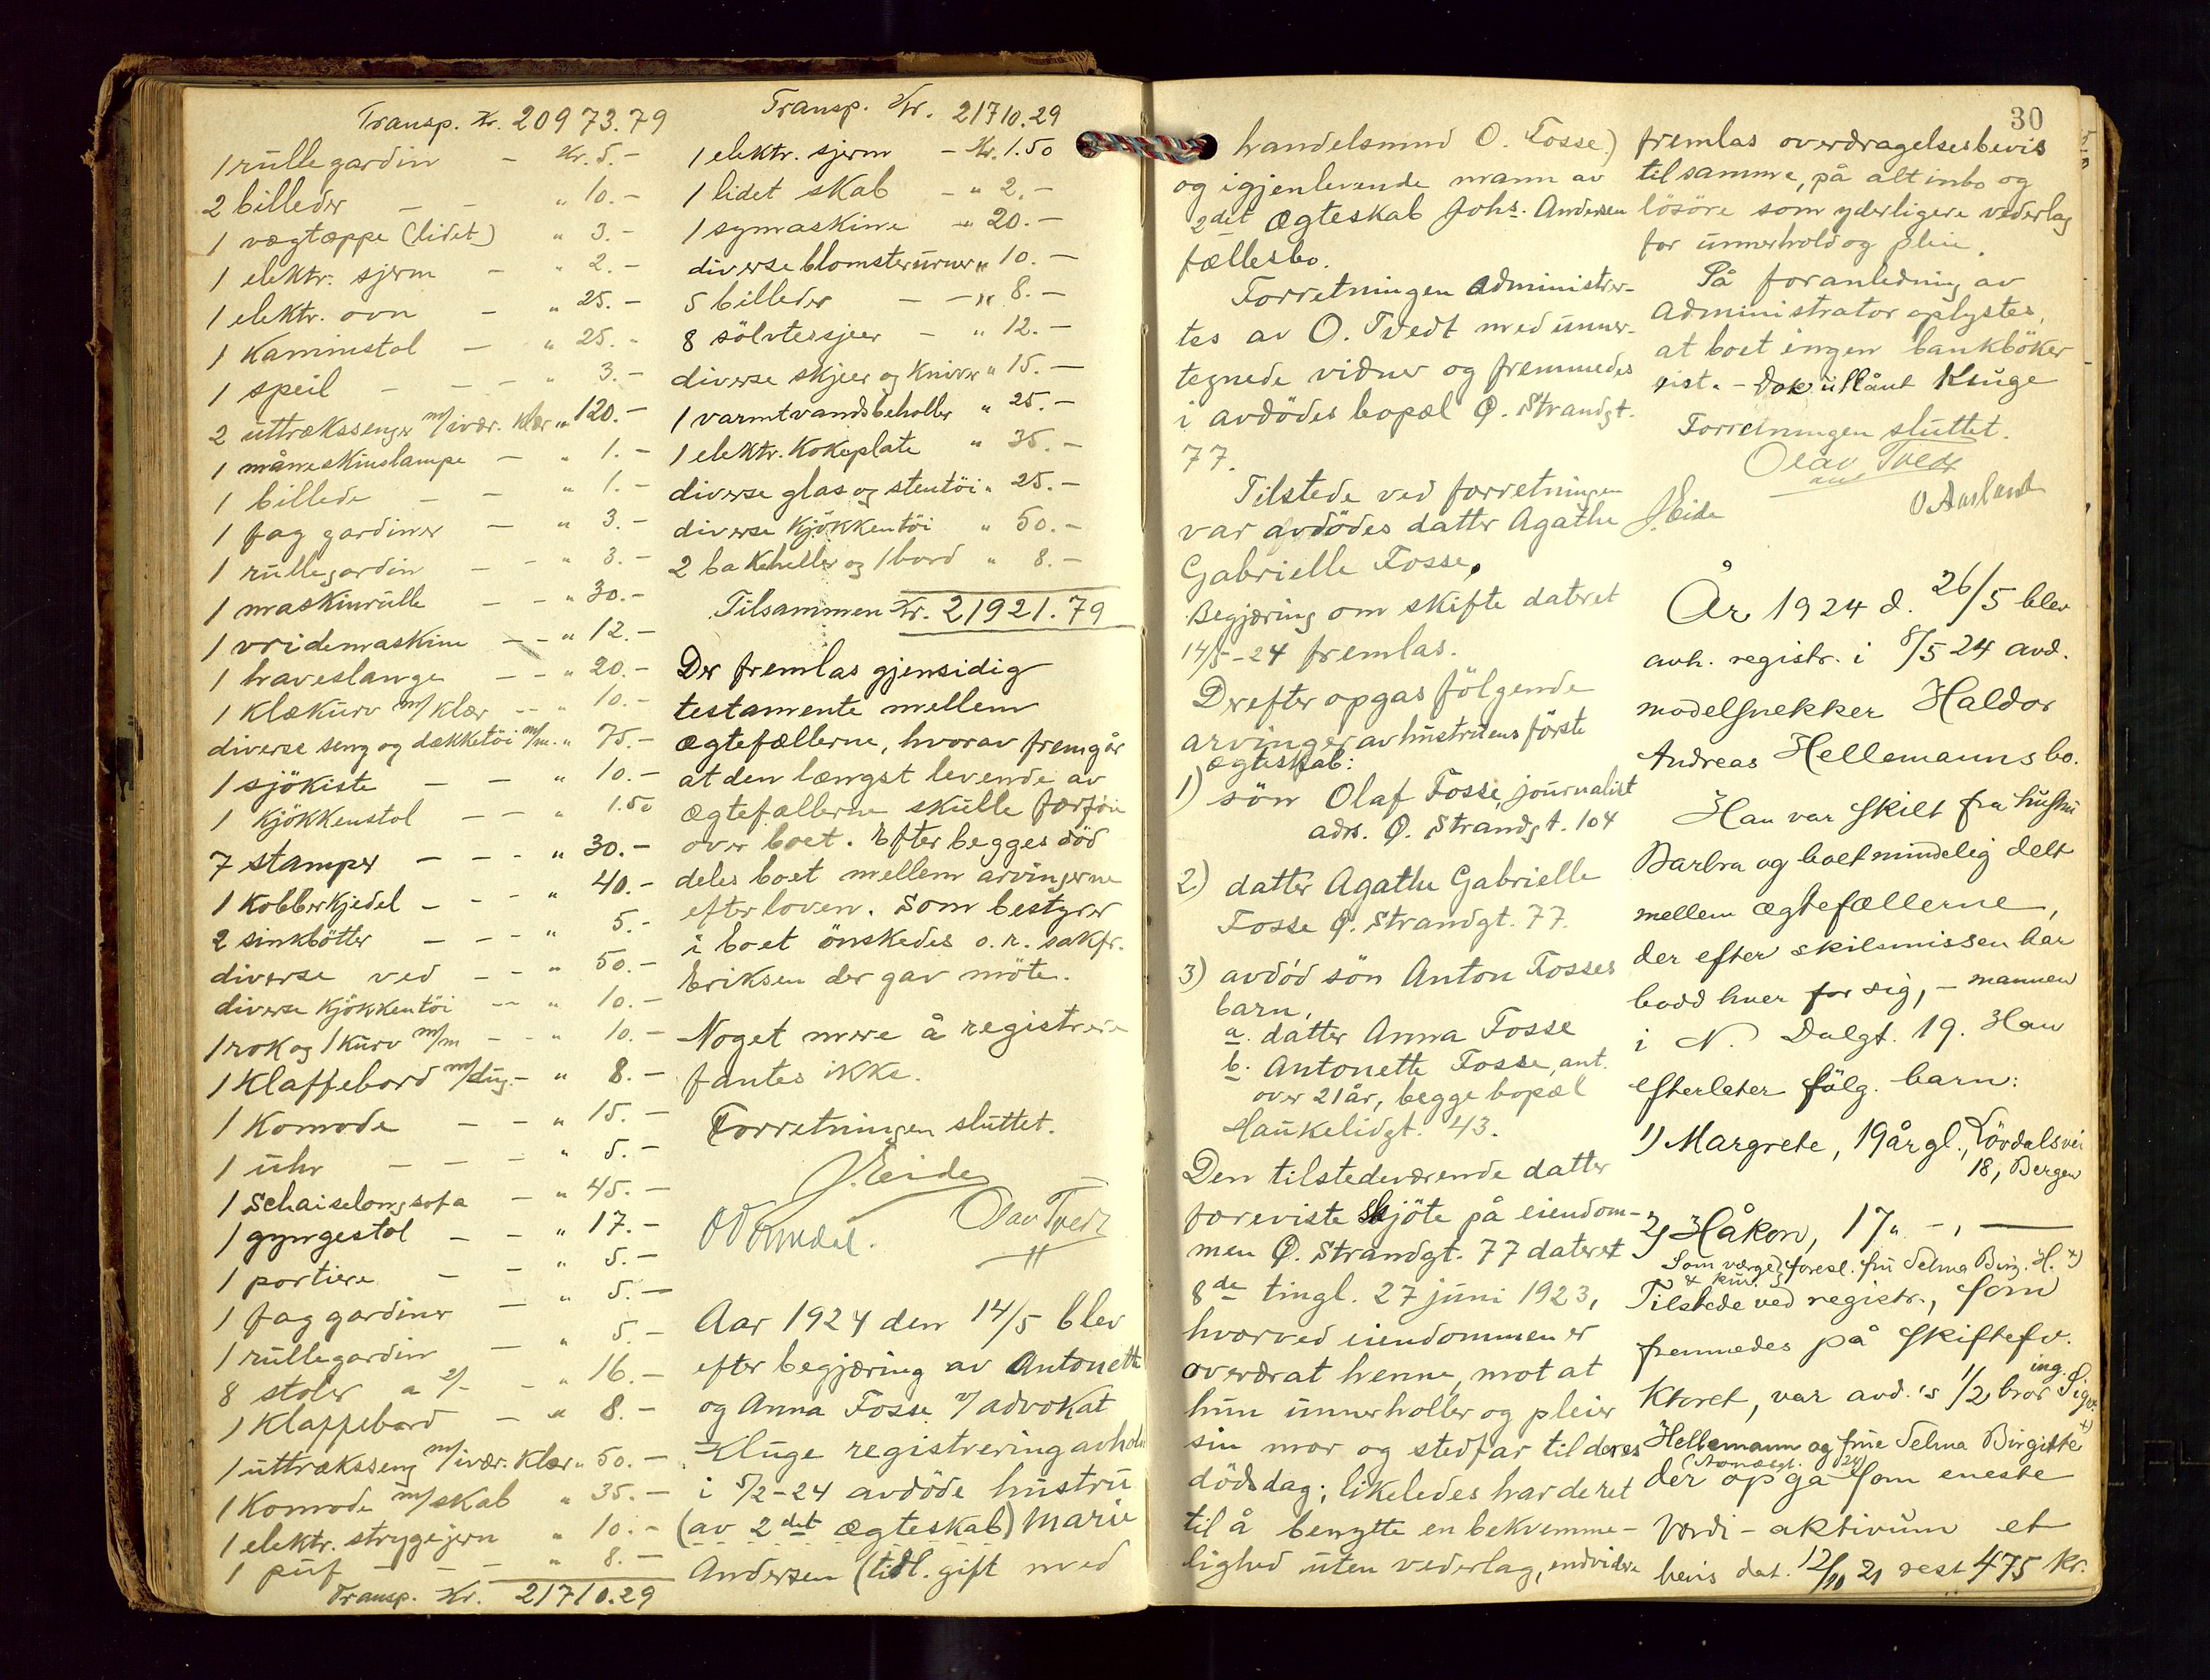 Transp. Kr. 20973.79
1 rullegardin - Kr. 5.-
2 billeder - - " 10.-
1 vægtæppe (lidet) " 3.-
1 elektr. sjerm - " 2.-
1 elektr. ovn - " 25.-
1 Kaminstol - " 25.-
1 speil - - - " 3.-
2 uttrækssenger m/ivær. klær " 120.-
1 måneskinslampe - " 1.-
1 billede - - " 1.-
1 fag gardiner - " 3.-
1 rullegardin - - " 3.-
1 maskinrulle - - " 30.-
1 vridemaskine - - " 12.-
1 haveslange - - " 20.-
1 klækurv m/klær - - " 10.-
diverse seng og dækketöi m/m. " 75.-
1 sjökiste - - " 10.-
1 Kjökkenstol - - " 1.50
7 stamper - - - " 30.-
1 Kobberkjedel - - - " 40.-
2 sinkbötter - - - " 5.-
diverse ved - - " 50.-
diverse Kjökkentöi - - " 10.-
1 rok og 1 kurv m/m - - " 10.-
1 Klaffebord m/dug - " 8.-
1 Komode - - " 15.-
1 uhr - - - " 5.-
1 Schaiselongsofa - " 45.-
1 gyngestol - - " 17.-
1 portiere - - " 5.-
1 fag gardiner - " 5.-
1 rullegardin - " 5.-
8 stoler a 2/- - " 16.-
1 Klaffebord - " 8.-
1 uttræksseng m/ivær. Klær " 50.-
1 Komode m/skab " 35.-
1 elektr. strygejern " 10.-
1 puf - - - " 8.-
Transp. Kr. 21710.29
Transp. Kr. 21710.29
1 elektr. sjerm - Kr. 1.50
1 lidet skab - " 2.-
1 symaskine - " 20.-
diverse blomsterurner " 10.-
5 billeder - - " 8.-
8 sölvteskjeer - " 12.-
diverse skjeer og Kniver " 15.-
1 varmtvandsbeholler " 25.-
1 elektr. Kokeplate " 35.-
diverse glas og stentöi " 25.-
diverse Kjökkentöi " 50.-
2 bakeheller og 1 bord " 8.-
Tilsammen Kr. 21921.79
Der fremlas gjensidig
testamente mellem
ægtefællerne, hvorav fremgår
at den længst levende av
ægtefællerne skulle forföie
over boet. Efter begges död
deles boet mellem arvingerne
efter loven. Som bestyrer
i boet önskedes o.r. sakfr.
Eriksen der gav möte.
Noget mere å registrere
fantes ikke.
Forretningen sluttet.
J. Eide
Olav Tvedt
Aar 1924 den 14/5 blev
efter begjæring av Antonette
og Anna Fosse v/ advokat
Kluge registrering avholdt
i 5/2-24 avdöde hustru
(av 2det ægteskab) Marie
Andersen (tidl. gift med
30
handelsmnd O. Fosse.)
og igjenlevende mann av
2det ægteskab Johs. Andersen
fællesbo.
Forretningen administrer-
tes av O. Tvedt med unner-
tegnede vidner og fremmedes
i avdödes bopæl Ö. Strandgt.
77.
Tilstede ved forretningen
var avdödes datter Agathe
Gabrielle Fosse.
Begjæring om skifte dateret
14/5-24 fremlas.
Derefter opgas fölgende
arvinger av hustruens förste
ægteskab:
1) sön Olaf Fosse, journalist
adrs. Ö. Strandgt. 104
2) datter Agathe Gabrielle
Fosse Ö. Strandgt. 77.
3) avdöd sön Anton Fosses
barn,
a. datter Anna Fosse
b. Antonette Fosse, ant.
over 21 år, begge bopæl
Haukelidgt. 43.
Den tilstedeværende datter
foreviste Skjöte på eiendom-
men Ö. Strandgt. 77 dateret
8de tingl. 27 juni 1923,
hvorved eiendommen er
overdrat henne, mot at
hun unnerholler og pleier
sin mor og stedfar til deres
dödsdag; likeledes har de ret
til å benytte en bekvemme-
lighed uten vederlag, endvidere
fremlas overdragelsesbevis
til samme, på alt inbo og
lösöre som yderligere vederlag
for unnerhold og pleie.
På foranledning av
administrator oplystes,
at boet ingen bankböker
eist. - Dok. utlånt Kluge
Forretningen sluttet.
Olav Tvedt
J. Eide
O Aarland
År 1924 d. 26/5 blev
avh. registr. i 8/5 24 avd.
modelsnekker Haldor
Andreas Hellemanns bo.
Han var skilt fra hustru
Barbra og boet mindelig delt
mellem ægtefællerne,
der efter skilsmissen har
bodd hver for sig, - mannen
i N. Dalgt. 19. Han
efterlater fölg. barn:
1) Margrete, 19 år gl., Lövdalsvei
18, Bergen
2) Håkon, 17 " - , -
Som værge foresl. fru Selma Birg. H. x)
& kur.
Tilstede ved registr., som
fremmedes på skiftefv.
ktoret, var avd.'s 1/2 bror ing. Sigv.
Hellemann og frue Selma Birgitte x)
der opga som eneste
Verdi-aktivum et
bevis dat. 12/10 21 rest 475 kr.